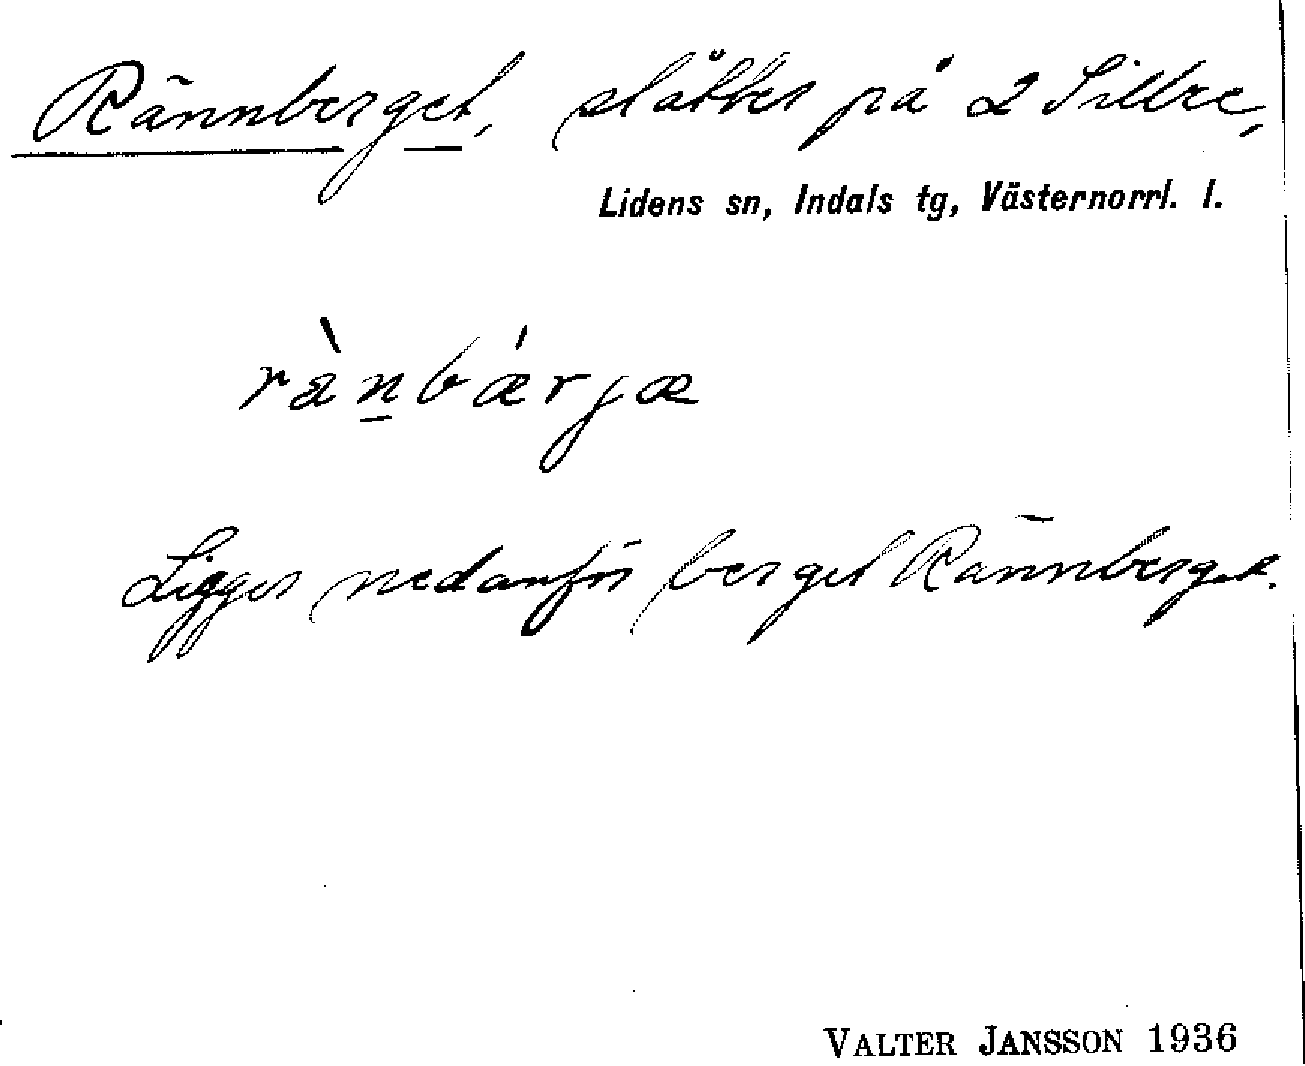 Rännberget, slåtter på 2 Sillre,
Lidens sn, Indals tg, Västernorrl. l.
rànbǽrjæ
Ligger nedanför berget Rännberget.
VALTER JANSSON 1936